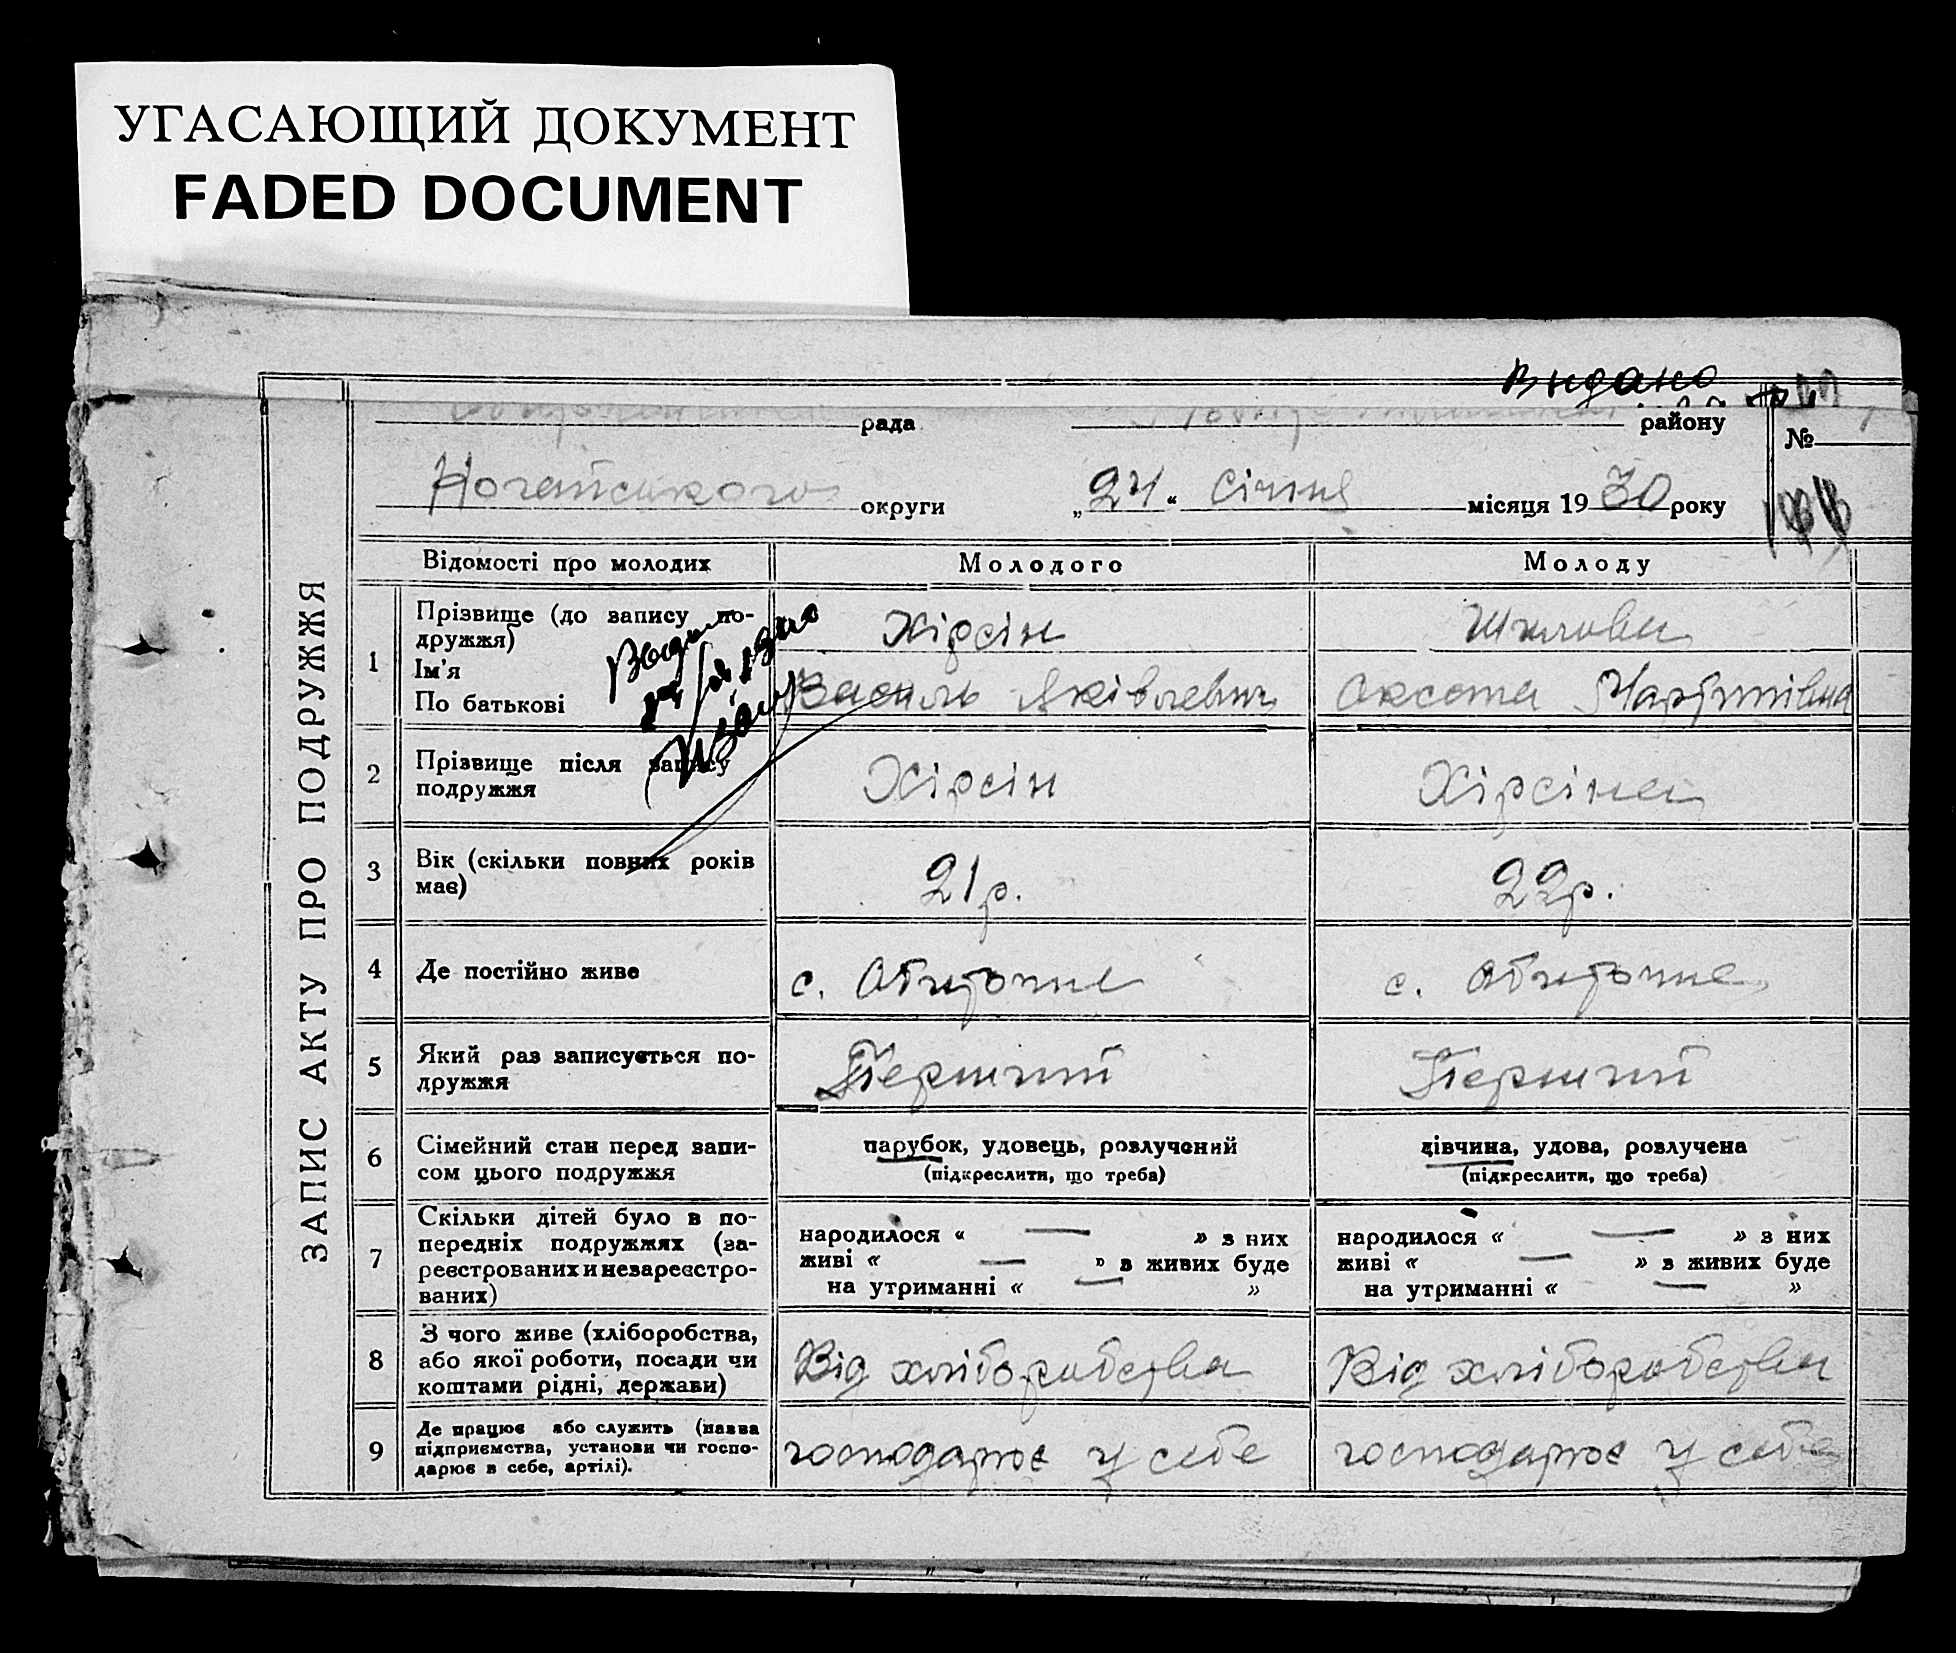 УГАСАЮЩИЙ ДОКУМЕНТ
FADED DOCUMENT
Видано
рада
району
№
Ногайського округи
„24“ Січня місяця 1930 року
ЗАПИС АКТУ ПРО ПОДРУЖЖЯ
Відомості про молодих
Молодого
Молоду
1
Прізвище (до запису по-
дружжя)
Ім'я
По батькові
Хірсін
Василь Яківлевич
Шилова
Оксета Мартинівна
2
Прізвище після запису
подружжя
Хірсін
Хірсіна
3
Вік (скільки повних років
має)
21 р.
22 р.
4
Де постійно живе
с. Обиточне
с. Обиточне
5
Який раз записується по-
дружжя
Перший
Перший
6
Сімейний стан перед запи-
сом цього подружжя
парубок, удовець, розлучений
(підкреслити, що треба)
дівчина, удова, розлучена
(підкреслити, що треба)
7
Скільки дітей було в по-
передніх подружжях (за-
реєстрованих и незареєстро-
ваних)
народилося « — » з них
живі « — » з живих буде
на утриманні « — »
народилося « — » з них
живі « — » з живих буде
на утриманні « — »
8
З чого живе (хліборобства,
або якої роботи, посади чи
коштами рідні, держави)
Від хліборобства
Від хліборобства
9
Де працює або служить (назва
підприємства, установи чи госпо-
дарює в себе, артілі).
господарює у себе
господарює у себе